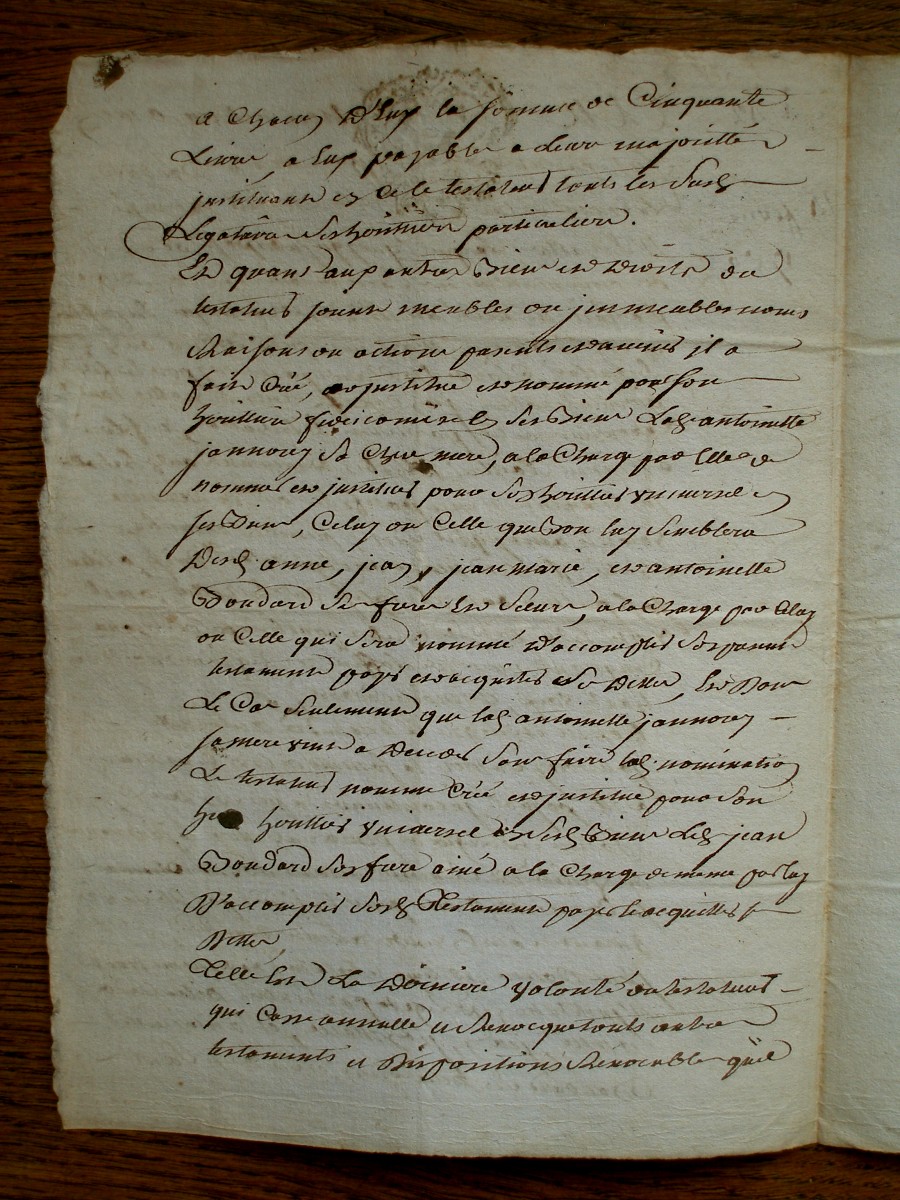 a Chacun d'Eux la somme de Cinquante
Livres, a Eux payable a Leur majoritté
instituant en Ce le testateur touts les susd
Legataires ses heritiers particuliers.
Et quant aux autres Biens et Droits du
testateur soient meubles ou immeubles noms
Raisons ou actions presents et avenir il a
fait Créé, institué et nommé pour son
heritiere fideicomise de ses Biens Lad antoinette
jannorey sa Chere mere, a la Charge par Elle de
nommer et instituer pour ses heritier universel en
ses Biens, Celuy ou Celle que Bon luy Semblera
Desd anne, jean, jean marie, et antoinette
Boudard ses freres Et Sœurs, a la Charge par Celuy
ou Celle qui Sera nommé d'accomplir Ses present
testament payer et acquitter Ses Dettes, Et Dans
Le Cas Seulement que lad antoinette jannorey
sa mere vint a Deceder Sans faire lad nomination
Le testateur nomme Créé et institue pour Son
heritier universel en Sesd Biens Led jean
Boudard Son frere ainé a la Charge de meme par luy
D'accomplir Sond Testament payer et acquitter ses
Dettes
Telle Est La Derniere volonté du testateur
qui Casse annulle et Revocque touts autres
testaments et Dispositions Revocables qu'il